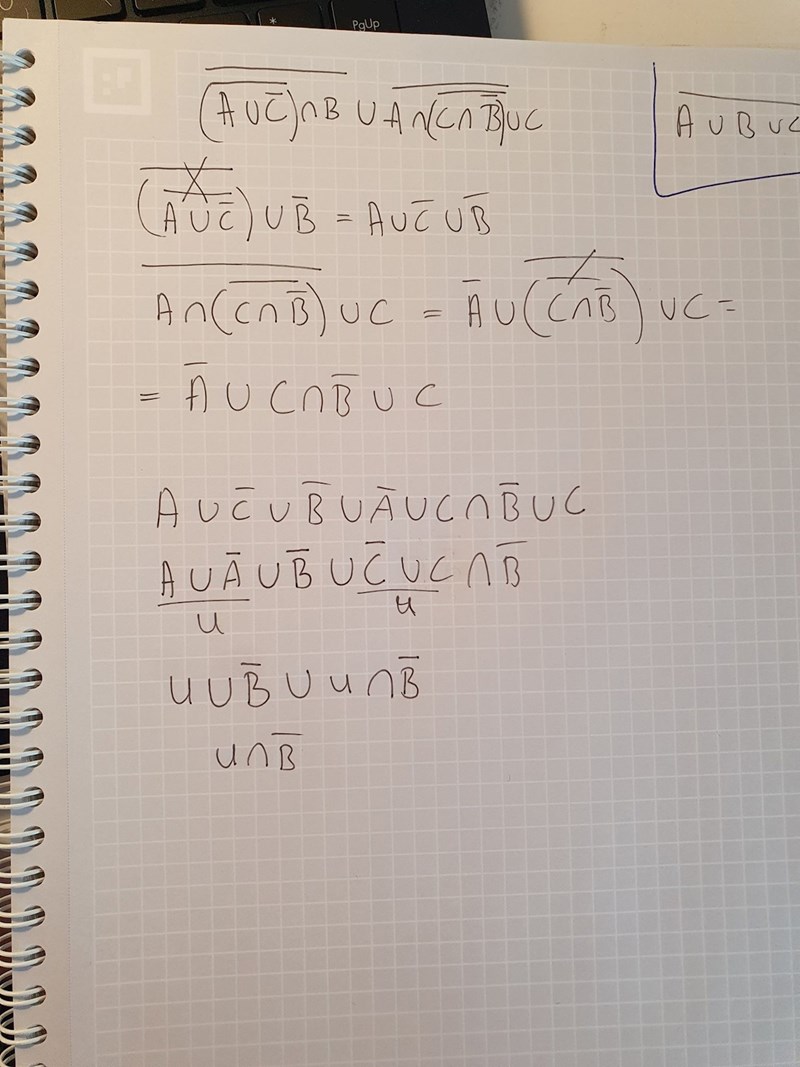 PgUp
*
(A̅ ̅∪̅ ̅C̅̅)∩B ∪ A∩(C∩B̅)∪C
A ∪ B ∪ C
(A ∪ C̅) ∪ B̅ = A ∪ C̅ ∪ B̅
A ∩ (C ∩ B̅) ∪ C = A̅ ∪ (C ∩ B̅) ∪ C =
= A̅ ∪ C ∩ B̅ ∪ C
A ∪ C̅ ∪ B̅ ∪ A̅ ∪ C ∩ B̅ ∪ C
A ∪ A̅ ∪ B̅ ∪ C̅ ∪ C ∩ B̅
U U
U ∪ B̅ ∪ U ∩ B̅
U ∩ B̅